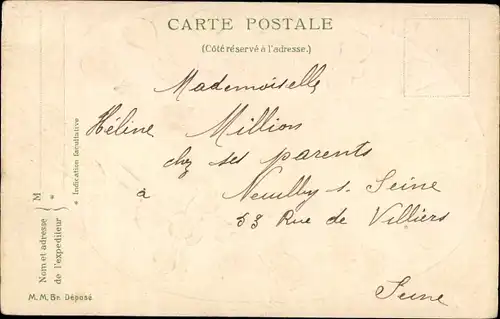 CARTE POSTALE
(Côté réservé à l'adresse.)
Mademoiselle
Héline Million
chez ses parents
à Neuilly s. Seine
53 Rue de Villiers
Seine
Nom et adresse
de l'expéditeur } M *
* Indication facultative
M. M. Br. Déposé